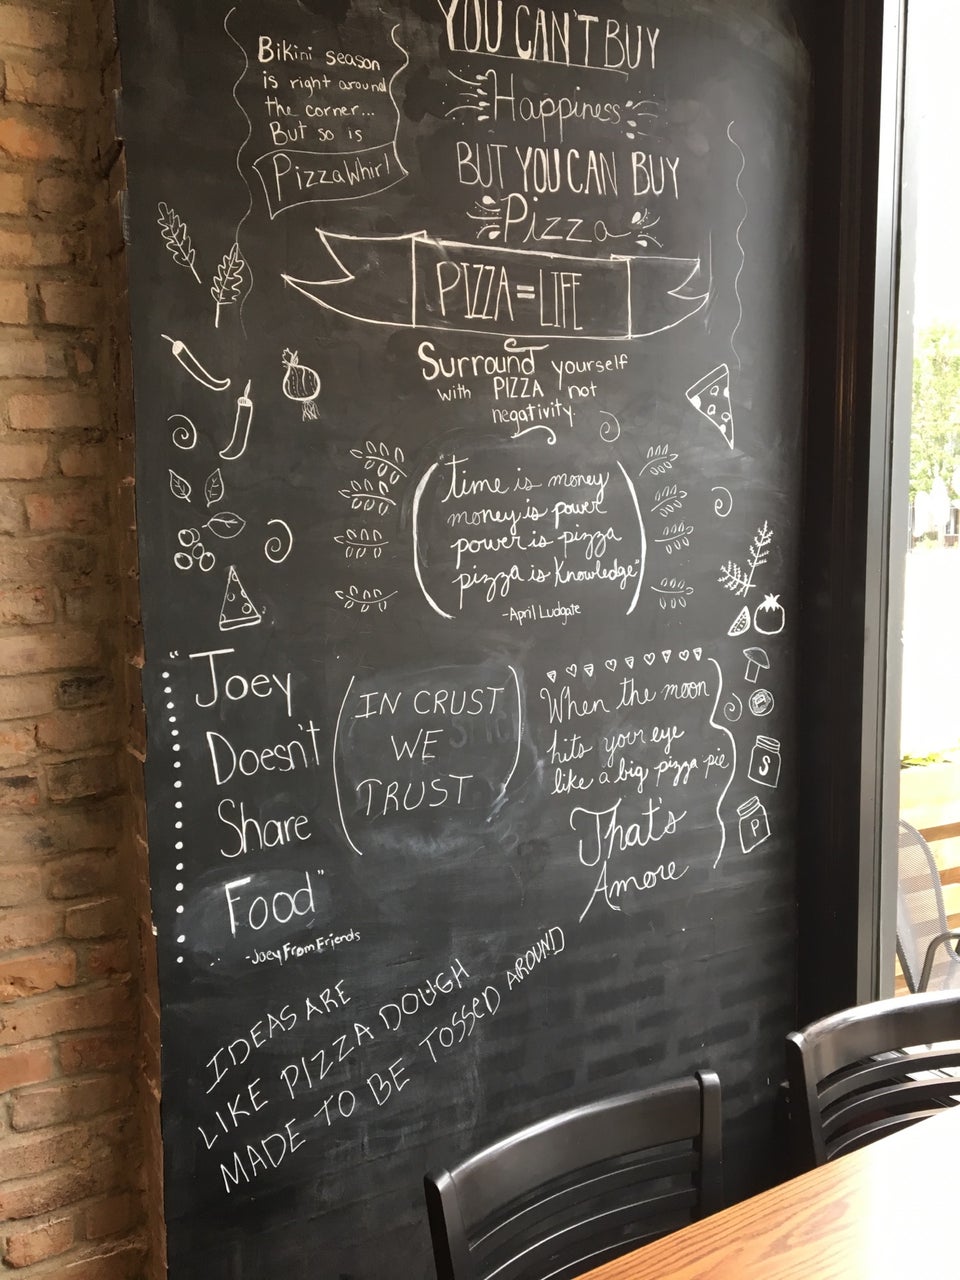 Bikini season
is right around
the corner...
But so is
PizzaWhirl
YOU CAN'T BUY
Happiness
BUT YOU CAN BUY
Pizza
PIZZA=LIFE
Surround yourself
with PIZZA not
negativity.
time is money
money is power
power is pizza
pizza is knowledge"
-April Ludgate
"Joey
Doesn't
Share
Food"
-Joey From Friends
IN CRUST
WE
TRUST
When the moon
hits your eye
like a big pizza pie
That's
Amore
S
P
IDEAS ARE
LIKE PIZZA DOUGH
MADE TO BE TOSSED AROUND